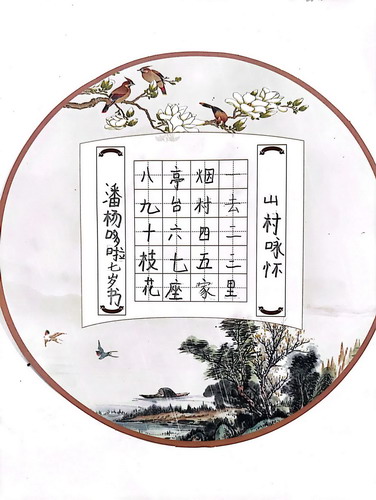 山村咏怀
一去二三里
烟村四五家
亭台六七座
八九十枝花
潘杨哆啦七岁书